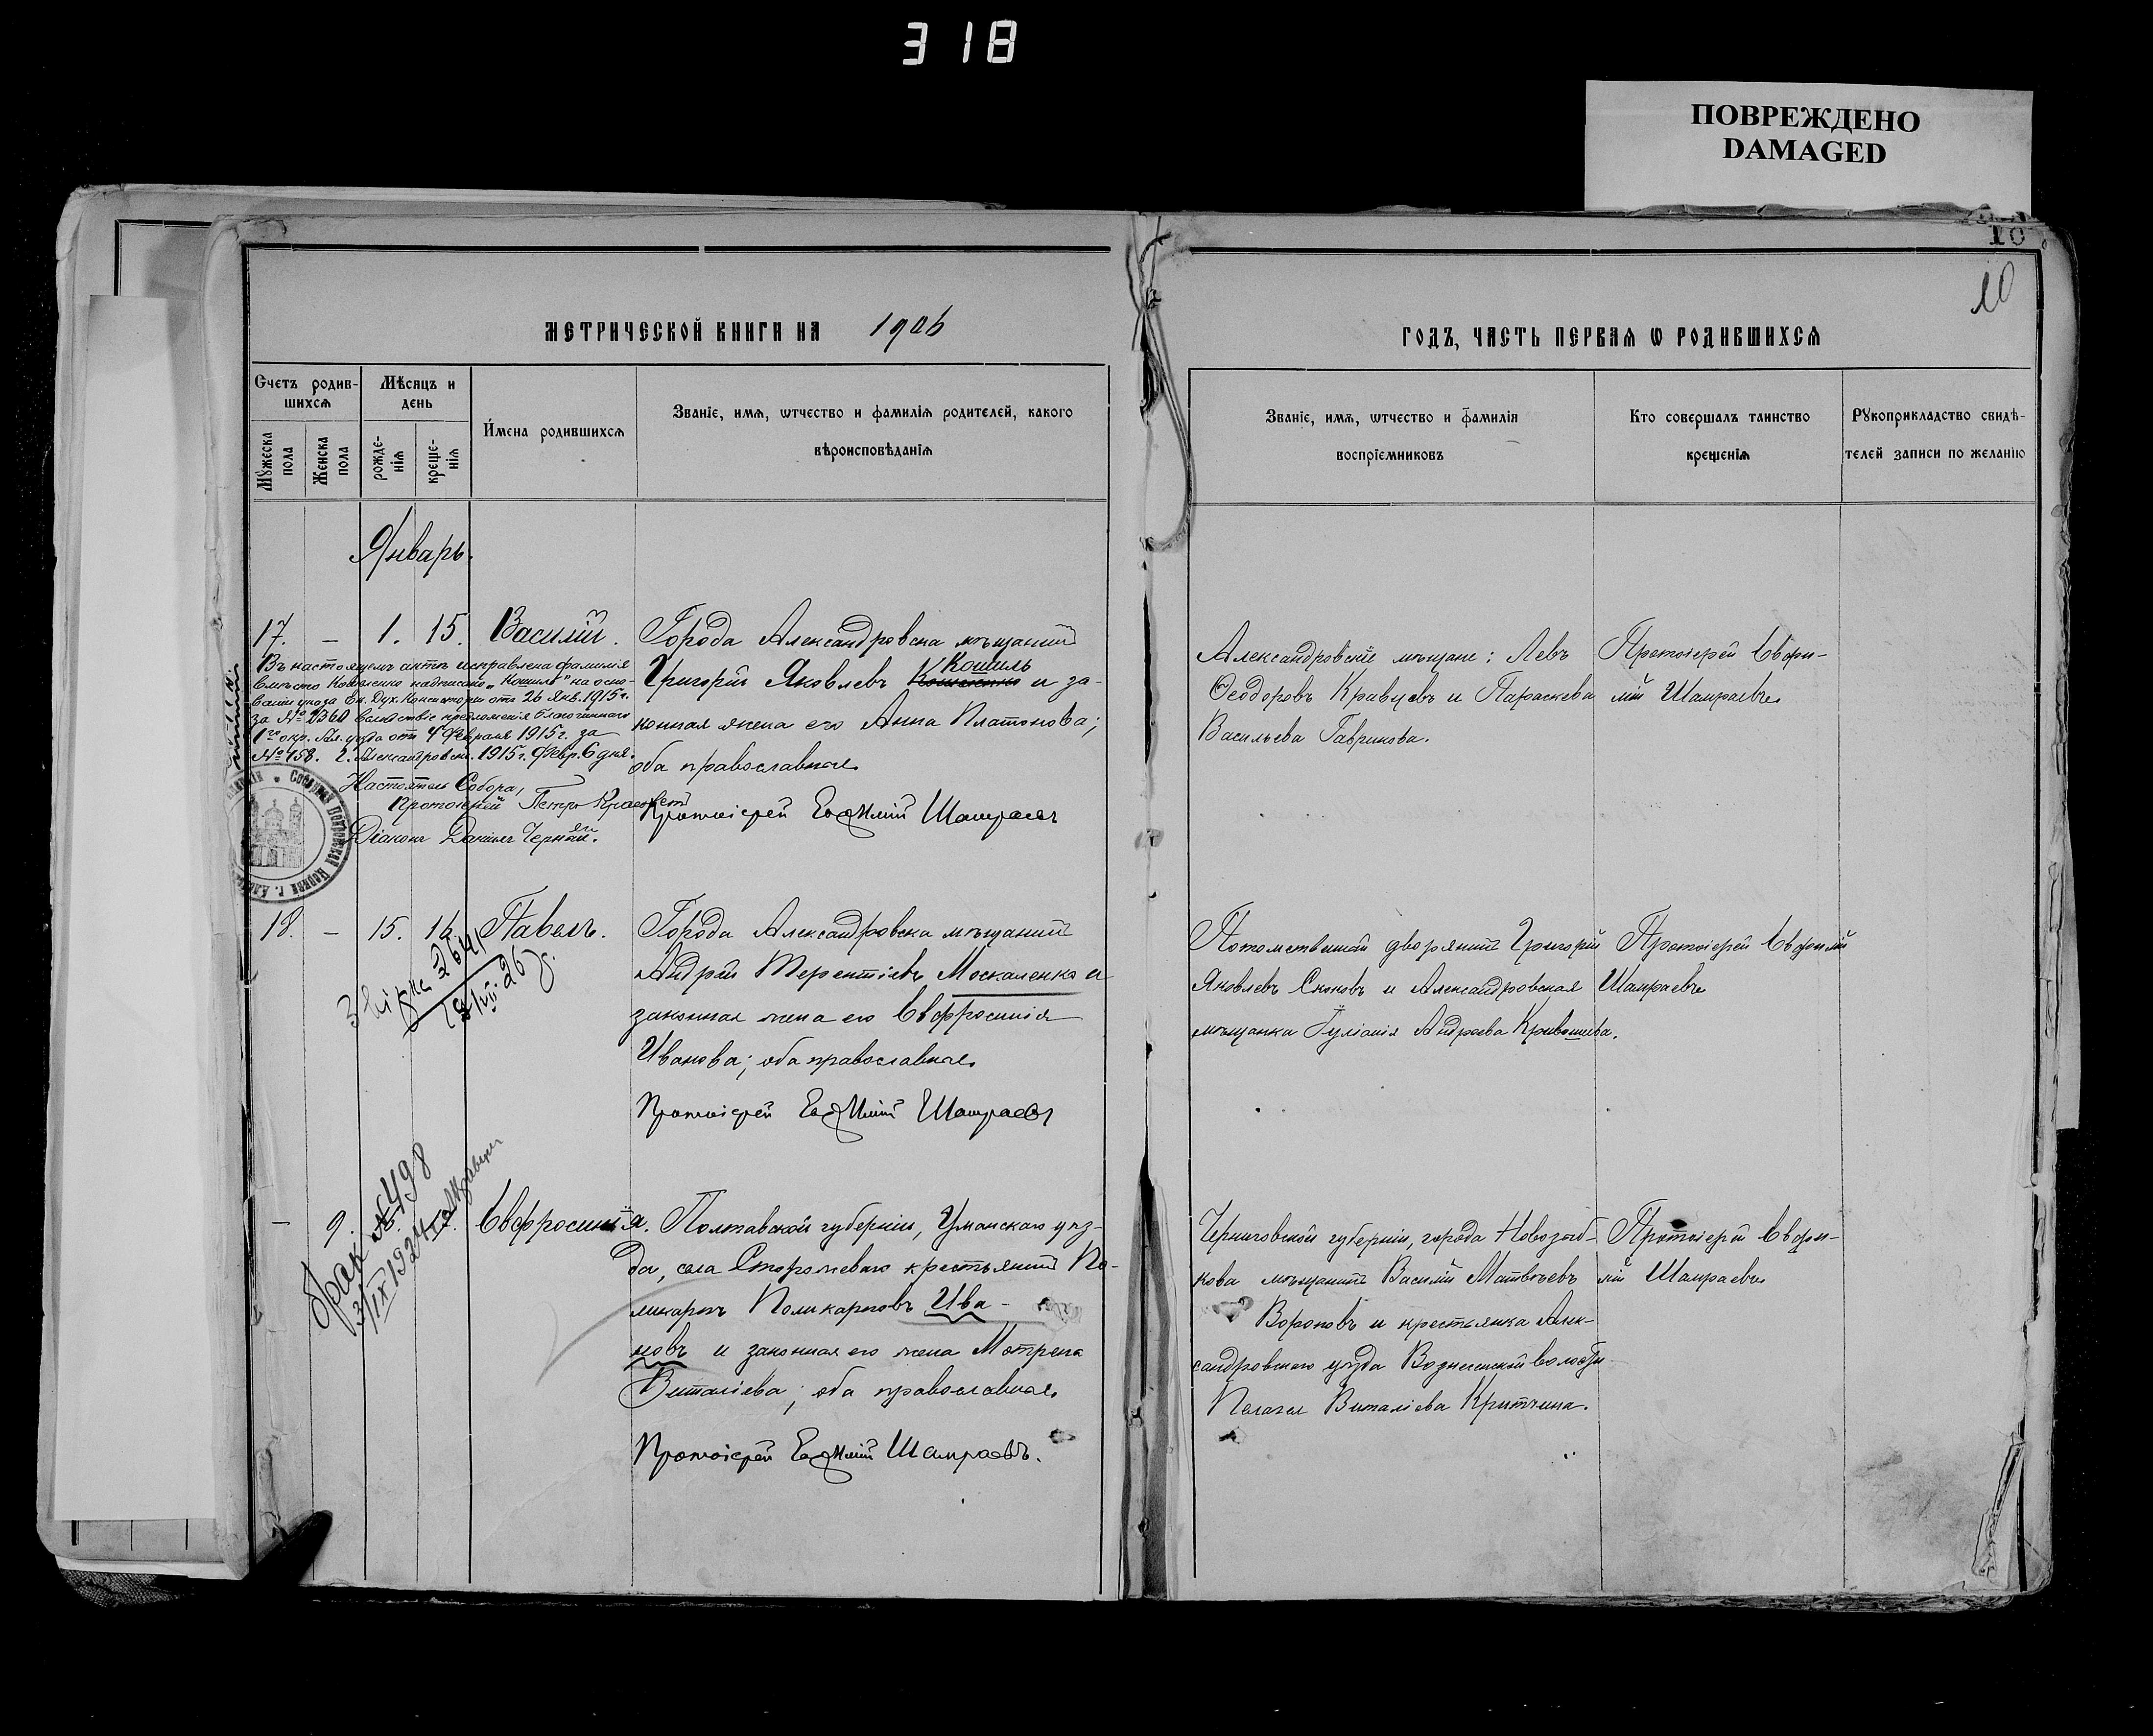 318
ПОВРЕЖДЕНО
DAMAGED
10
10
МЕТРИЧЕСКОЙ КНИГИ НА 1906
ГОДЪ, ЧАСТЬ ПЕРВАЯ Ѡ РОДИВШИХСЯ
Счетъ родив-
шихся
Мужеска
пола
Женска
пола
Мѣсяцъ и
день
рожде-
нія
креще-
нія
Имена родившихся
Званіе, имя, ѡтчество и фамилія родителей, какого
вѣроисповѣданія
Званіе, имя, ѡтчество и фамилія
воспріемниковъ
Кто совершалъ таинство
крещенія
Рукоприкладство свидѣ-
телей записи по желанію
Январь.
17. – 1. 15. Василій.
Города Александровска мѣщанинъ
Кошиль
Григорій Яковлевъ и за-
конная жена его Анна Платонова;
оба православные
Протоіерей Евѳимій Шамраевъ
Въ настоящемъ актѣ исправлена фамилія
вмѣсто надписано „Кошиль" на осно-
ваніи указа Ек. Дух. Консисторіи отъ 26 Янв. 1915 г.
за № 2360 вслѣдствіе предложенія благочиннаго
1го окр. Ал. уѣзда отъ 4 Февраля 1915 г. за
№ 158. г. Александровскъ. 1915 г. Февр. 6 дня.
Настоятель Собора,
Протоіерей Петръ
Діаконъ Даніилъ
Александровскіе мѣщане: Левъ
Ѳеодоровъ Кравцовъ и Параскева
Васильева Гавришова.
Протоіерей Евфи-
мій Шамраевъ
18. – 15. 16. Павелъ.
Города Александровска мѣщанинъ
Андрей Терентіевъ Москаленко и
законная жена его Евфросинія
Иванова; оба православные
Протоіерей Евѳимій Шамраевъ
2641
Потомственный дворянинъ Григорій
Яковлевъ и Александровская
мѣщанка Іуліанія Андреева
Протоіерей Евфимій
Шамраевъ
– 9. Евфросинія.
Полтавской губерніи, Уманскаго уѣз-
да, села Сторожеваго крестьянинъ По-
ликарпъ Поликарповъ Ива-
новъ и законная его жена Мотрона
Виталіева; оба православные
Протоіерей Евѳимій Шамраевъ.
брак №498
3/IX 1924
Черниговской губерніи, города Новозыб-
кова мѣщанинъ Василій Матвѣевъ
Вороновъ и крестьянка Алек-
сандровскаго уѣзда Вознесенской волости
Пелагея Виталіева
Протоіерей Евфи-
мій Шамраевъ